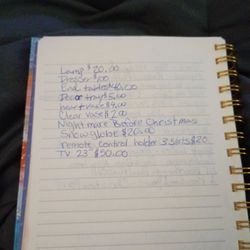 Lamp $20.00
Dresser $100
End tables $40.00
Decor tray $5.00
heart vase $4.00
Clear vase $2.00
Nightmare Before Christmas
Snow globe $26.00
remote control holder 3 slots $20
TV 23" $50.00